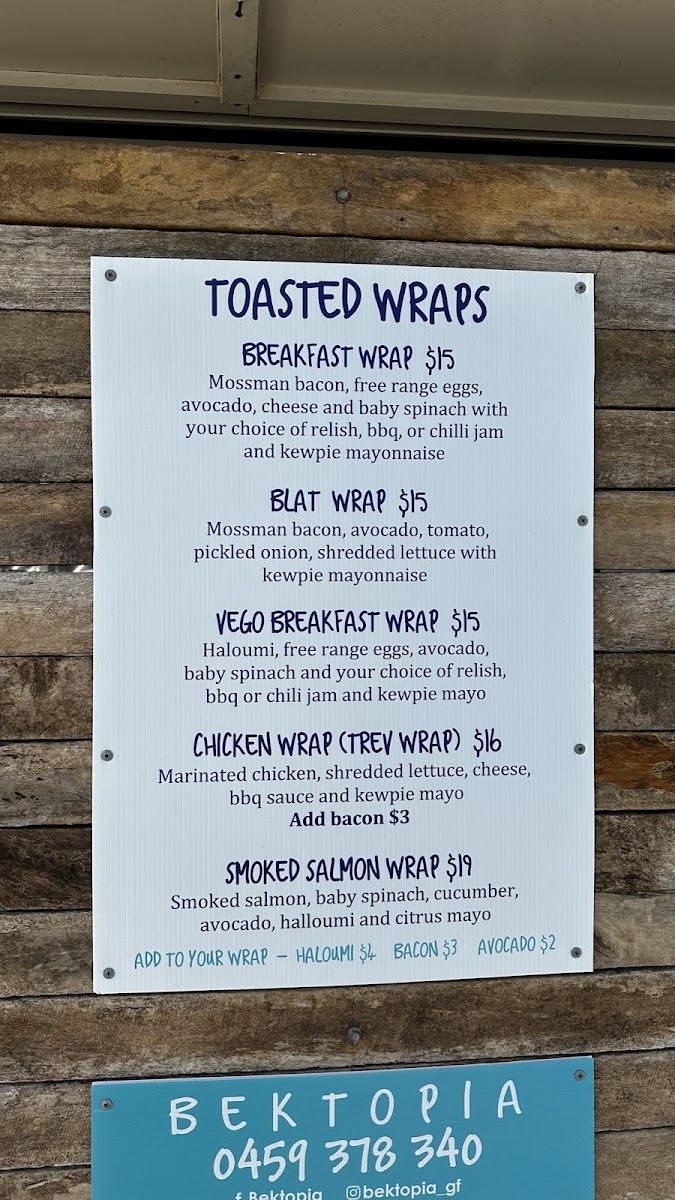 TOASTED WRAPS
BREAKFAST WRAP $15
Mossman bacon, free range eggs,
avocado, cheese and baby spinach with
your choice of relish, bbq, or chilli jam
and kewpie mayonnaise
BLAT WRAP $15
Mossman bacon, avocado, tomato,
pickled onion, shredded lettuce with
kewpie mayonnaise
VEGO BREAKFAST WRAP $15
Haloumi, free range eggs, avocado,
baby spinach and your choice of relish,
bbq or chili jam and kewpie mayo
CHICKEN WRAP (TREV WRAP) $16
Marinated chicken, shredded lettuce, cheese,
bbq sauce and kewpie mayo
Add bacon $3
SMOKED SALMON WRAP $19
Smoked salmon, baby spinach, cucumber,
avocado, halloumi and citrus mayo
ADD TO YOUR WRAP – HALOUMI $4 BACON $3 AVOCADO $2
BEKTOPIA
0459 378 340
f Bektopia @bektopia_gf